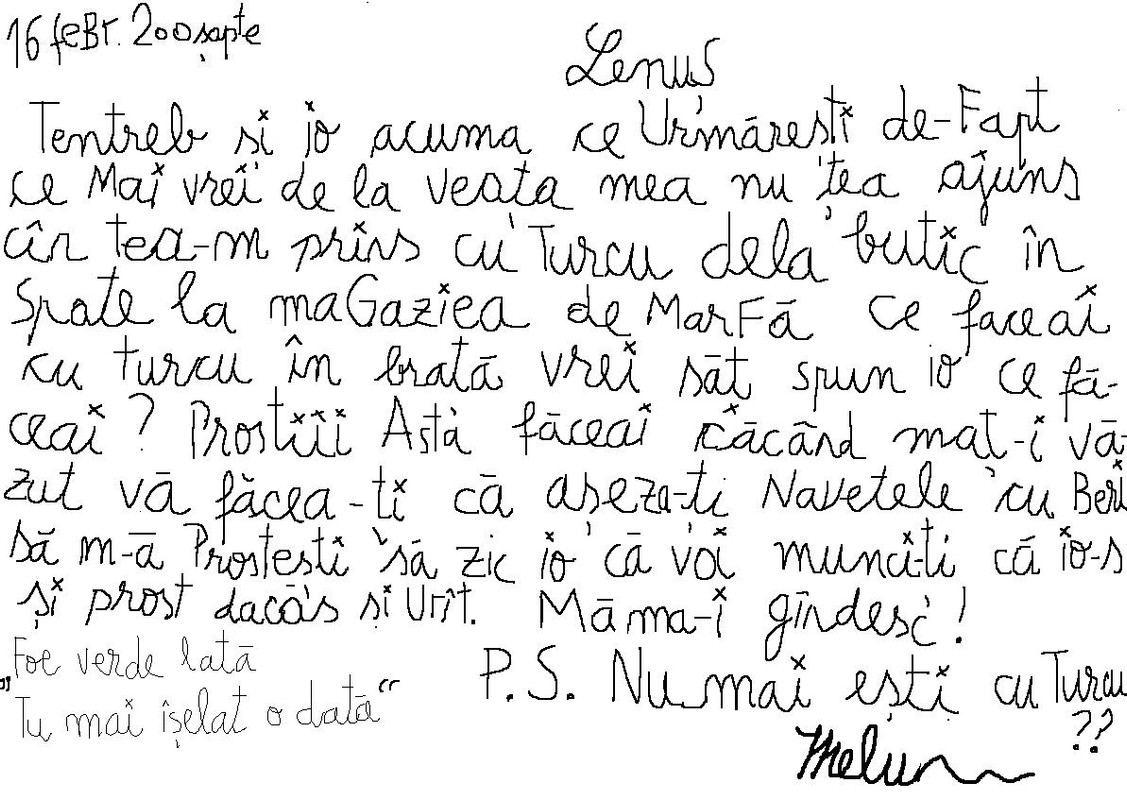 16 feBr. 200șapte
Lenuș
Tentreb si jo acuma ce Urmăresti de-Fapt
ce Mai vrei de la veata mea nu tea ajuns
cîn tea-m prins cu Turcu dela butic în
Spate la maGaziea de MarFă ce faceai
cu turcu în brată vrei săt spun io ce fă-
ceai? Prostiii Astă făceai căcând mat-i vă-
zut vă făcea-ti că aseza-ti Navetele cu Beri
să m-ă Prostesti să zic io că voi munci-ti că io-s
și prost dacă's și Urît. Măma-i gîndesc!
Foe verde lată
"Tu mai îșelat o dată"
P.S. Nu mai ești cu Turcu
??
Melu